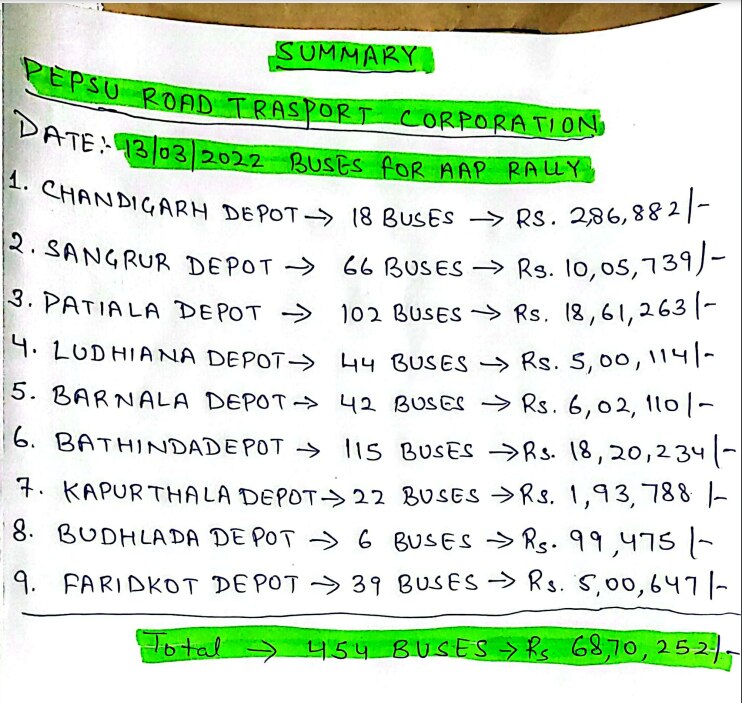 SUMMARY
PEPSU ROAD TRASPORT CORPORATION
DATE:- 13/03/2022 BUSES FOR AAP RALLY
1. CHANDIGARH DEPOT → 18 BUSES → RS. 2,86,882/-
2. SANGRUR DEPOT → 66 BUSES → Rs. 10,05,739/-
3. PATIALA DEPOT → 102 BUSES → Rs. 18,61,263/-
4. LUDHIANA DEPOT → 44 BUSES → Rs. 5,00,114/-
5. BARNALA DEPOT → 42 BUSES → Rs. 6,02,110/-
6. BATHINDADEPOT → 115 BUSES → Rs. 18,20,234/-
7. KAPURTHALA DEPOT → 22 BUSES → Rs. 1,93,788/-
8. BUDHLADA DEPOT → 6 BUSES → Rs. 99,475/-
9. FARIDKOT DEPOT → 39 BUSES → Rs. 5,00,647/-
Total → 454 BUSES → Rs 68,70,252/-